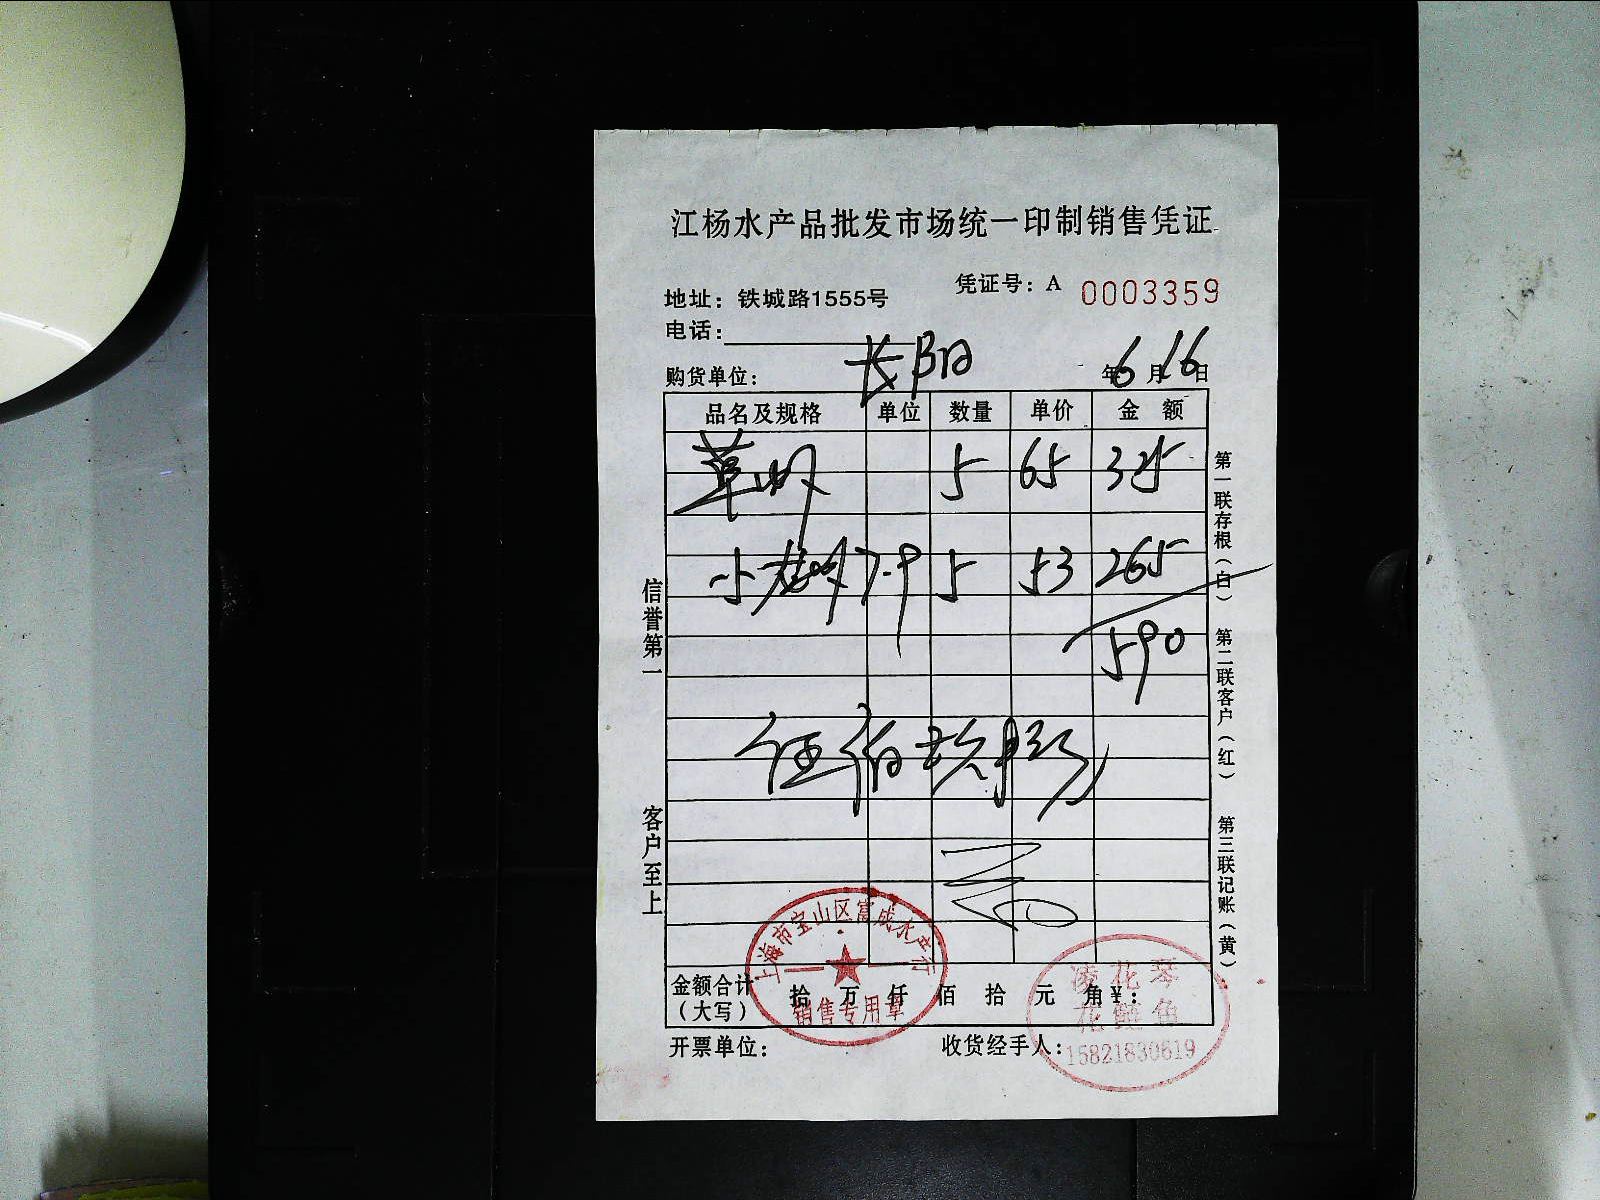 江杨水产品批发市场统一印制销售凭证
凭证号：A 0003359
地址：铁城路1555号
电话：
购货单位：长阳 年6月16日
品名及规格 单位 数量 单价 金额
草虾 5 65 325
小龙虾 7-9 5 53 265
590
伍佰玖拾
信誉第一
客户至上
第一联存根（白）
第二联客户（红）
第三联记账（黄）
金额合计（大写） 拾 万 仟 佰 拾 元 角 ¥：
开票单位： 收货经手人：
上海市宝山区富成水产行
销售专用章
凌花琴
花鲢鱼
15821830619